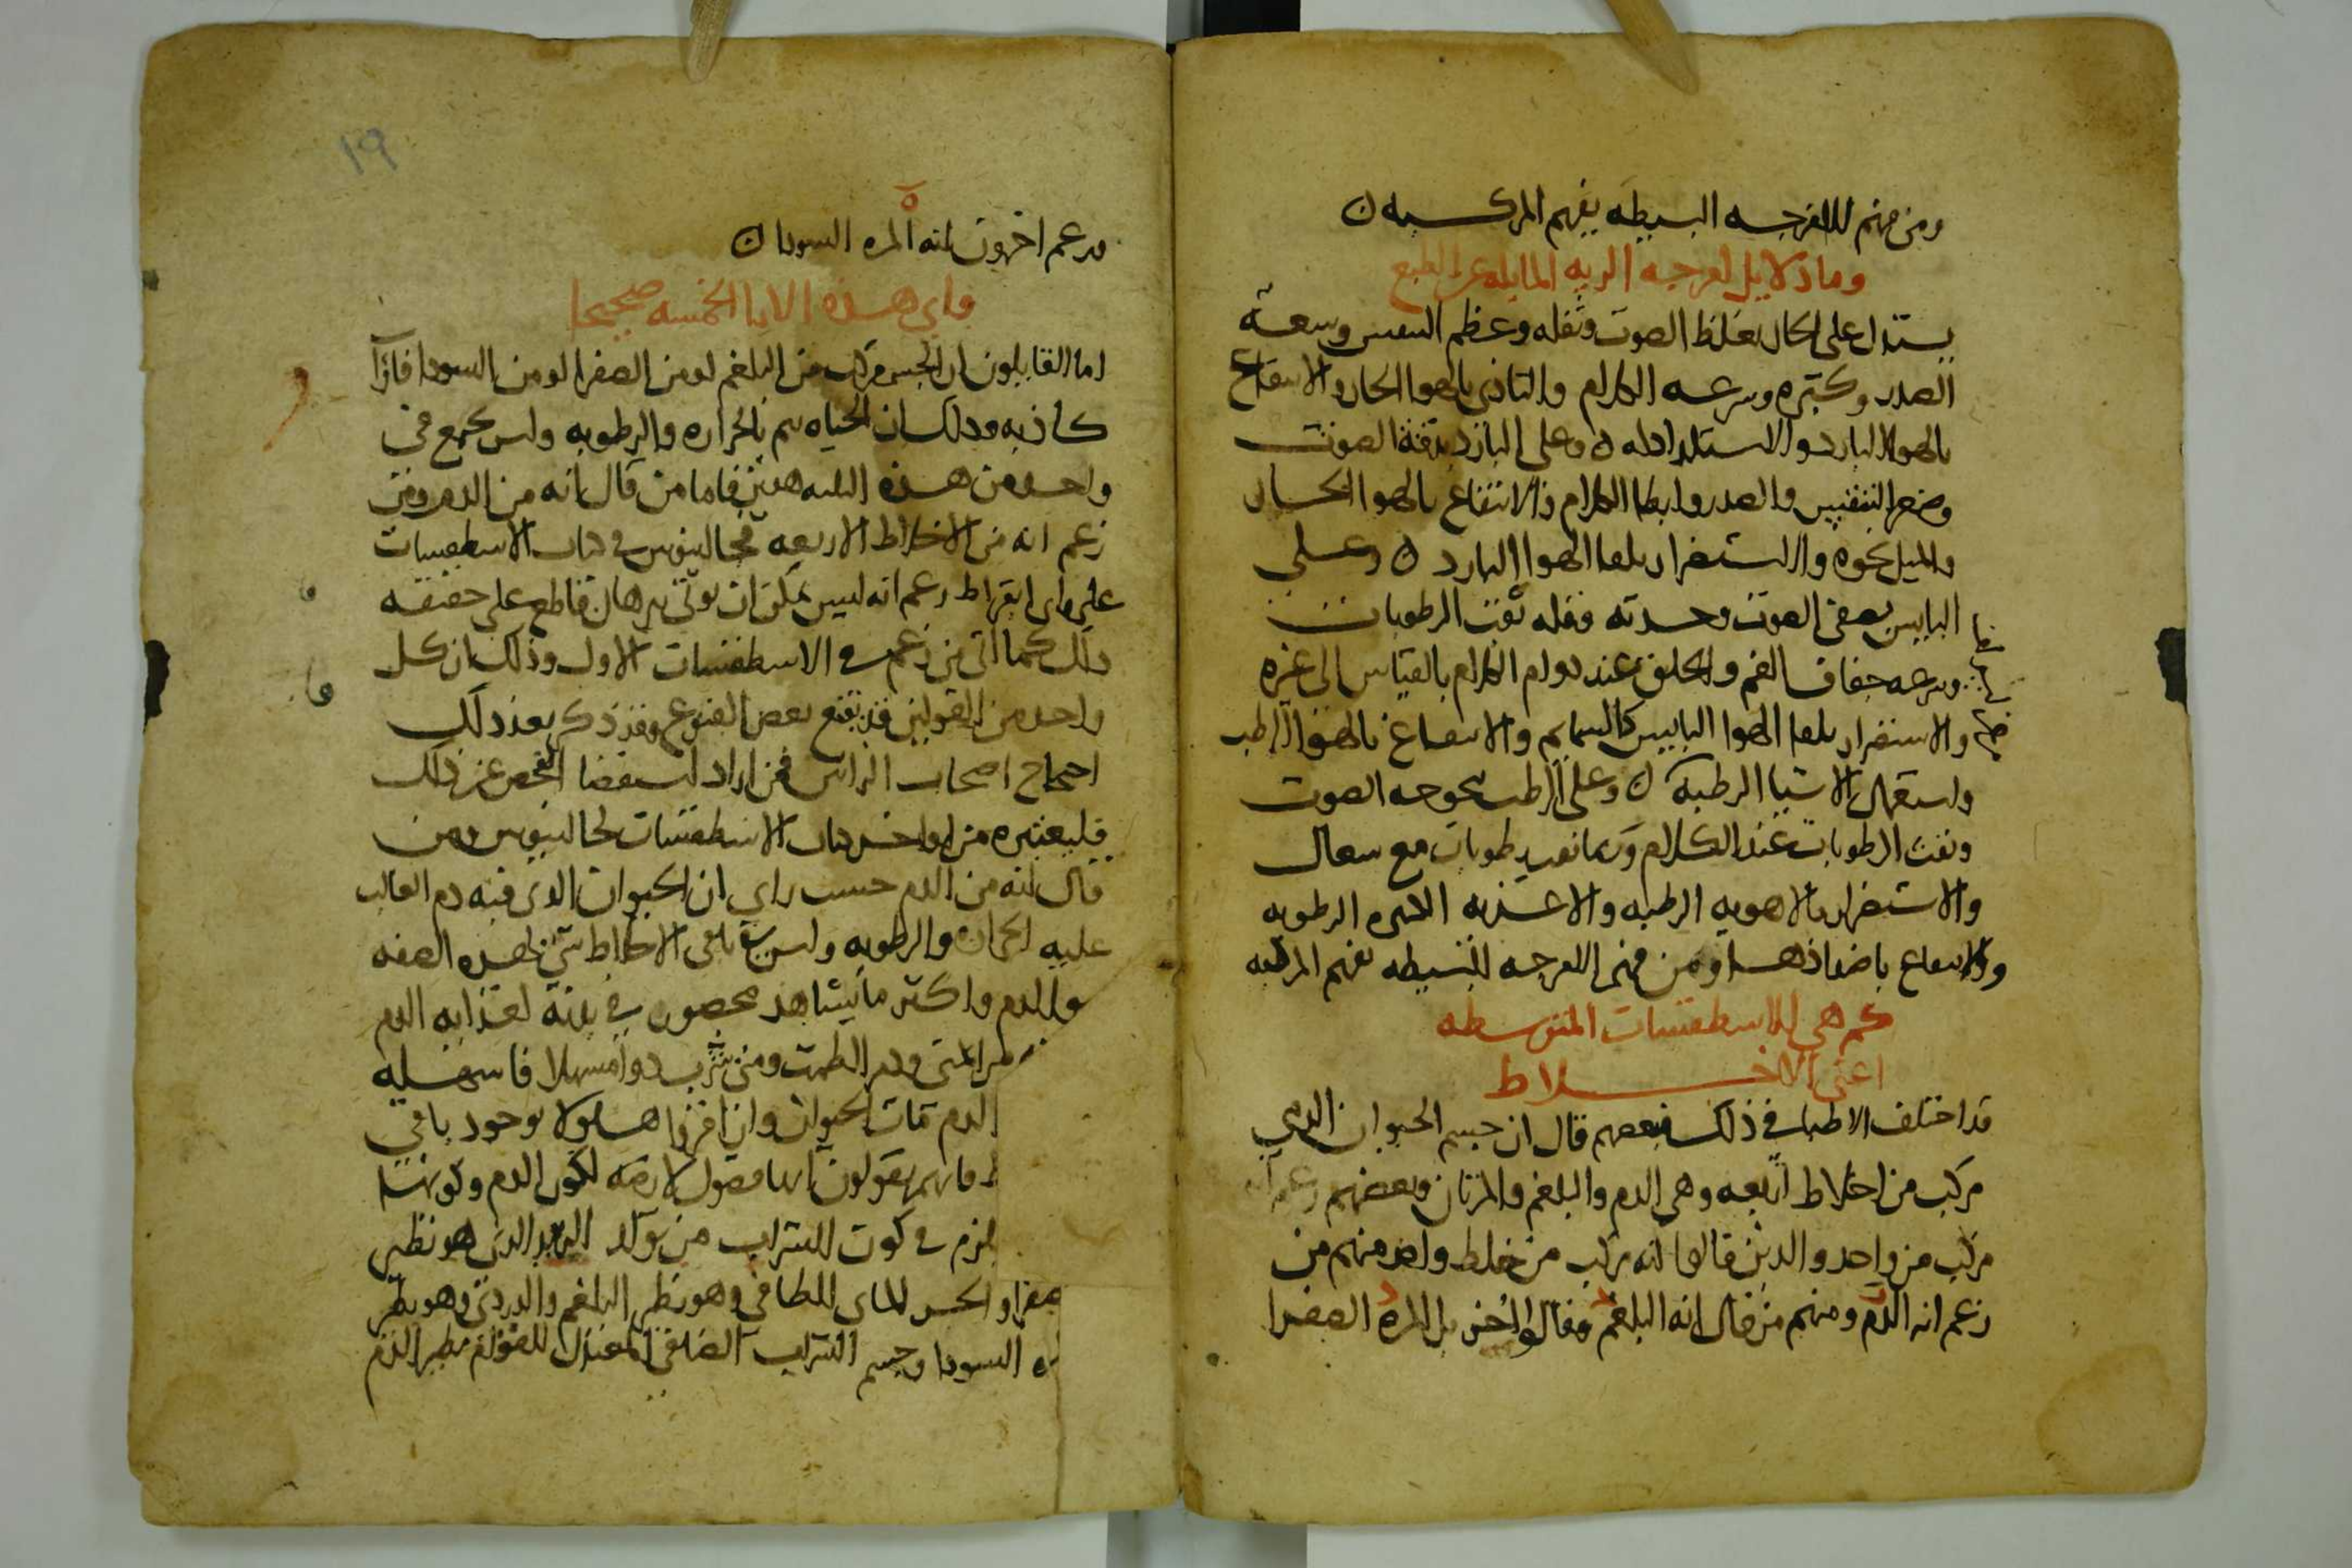 ومن فهم الامزجه البسيطه يفهم المركبه ن
وما دلايل امزجه الريه المايله عن الطبع
يستدل على الحار بغلظ الصوت وثقله وعظم النفس وسعة
الصدر وكبره وسرعه الكلام والتاذي بالهوا الحار والانتفاع
بالهوا البارد والاستلذاذ له ن وعلى البارد بدقة الصوت
وصغر التنفس والصدر وابطا الكلام والانتفاع بالهوا الحار
والميل نحوه والاستضرار بلقا الهوا البارد ن وعلى
اليابس بصفى الصوت وحدته وقله نفث الرطوبات
وسرعه جفاف الفم والحلق عند دوام الكلام بالقياس الى غيره
والاستضرار بلقا الهوا اليابس كالسمايم والانتفاع بالهوا الرطب
واستعمال الاشيا الرطبة ن وعلى الرطب بحوحه الصوت
ونفث الرطوبات عند الكلام وربما نفث رطوبات مع سعال
والاستضرار بالاهويه الرطبه والاغذيه الكثيره الرطوبه
والانتفاع باضدادها ومن فهم الامزجه البسيطه يفهم المركبه
كم هي الاسطقسات المتوسطه
اعني الاخلاط
قد اختلف الاطبا في ذلك فبعضهم قال ان جسم الحيوان الذي
مركب من اخلاط اربعه وهي الدم والبلغم والمرتان وبعضهم زعم انه
مركب من واحد والذين قالوا انه مركب من خلط واحد منهم من
زعم انه الدم ومنهم من قال انه البلغم وقالوا اخر بل المره الصفرا
١٩
وزعم اخرون انه المره السودا ن
واي هذه الارا الخمسه صحيحا
اما القايلون ان الجسم مركب من البلغم او من الصفرا او من السودا فارآ
كاذبه وذلك ان الحياه تتم بالحراره والرطوبه وليس يجمع في
واحد من هذه الثلثه هذين فاما من قال انه من الدم ومن
زعم انه من الاخلاط الاربعه فجالينوس في كتاب الاسطقسات
على راى ابقراط زعم انه ليس يمكن ان يوتى ببرهان قاطع على حقيقه
ذلك كما اتى من زعم في الاسطقسات الاول وذلك ان كل
واحد من القولين قد يقنع بعض القنوع وقد ذكر بعد ذلك
احتجاج اصحاب الرايين فمن اراد استقصا الفحص عن ذلك
فليعتبره من اواخر كتاب الاسطقسات لجالينوس ومن
قال انه من الدم حسب راي ان الحيوان الذى فيه دم الغالب
عليه الحراره والرطوبه وليس في باقى الاخلاط شي بهذه الصفه
والدم واكثر ما يشاهد محصور في بدنه لغذايه الدم
المنى ودم الطمث ومن شرب دوا مسهلا فاسهله
الدم مات الحيوان وان اقروا هاولا بوجود باقي
فانهم يقولون انها فضول لازمه لكون الدم وكونها
يلزم في كون الشراب من تولد الزبد الذى هو نظير
صفرا والجسم الماى الطافى وهو نظير البلغم والدردى وهو نظير
ه السودا وجسم الشراب الصافى المعتدل القوام نظير الدم